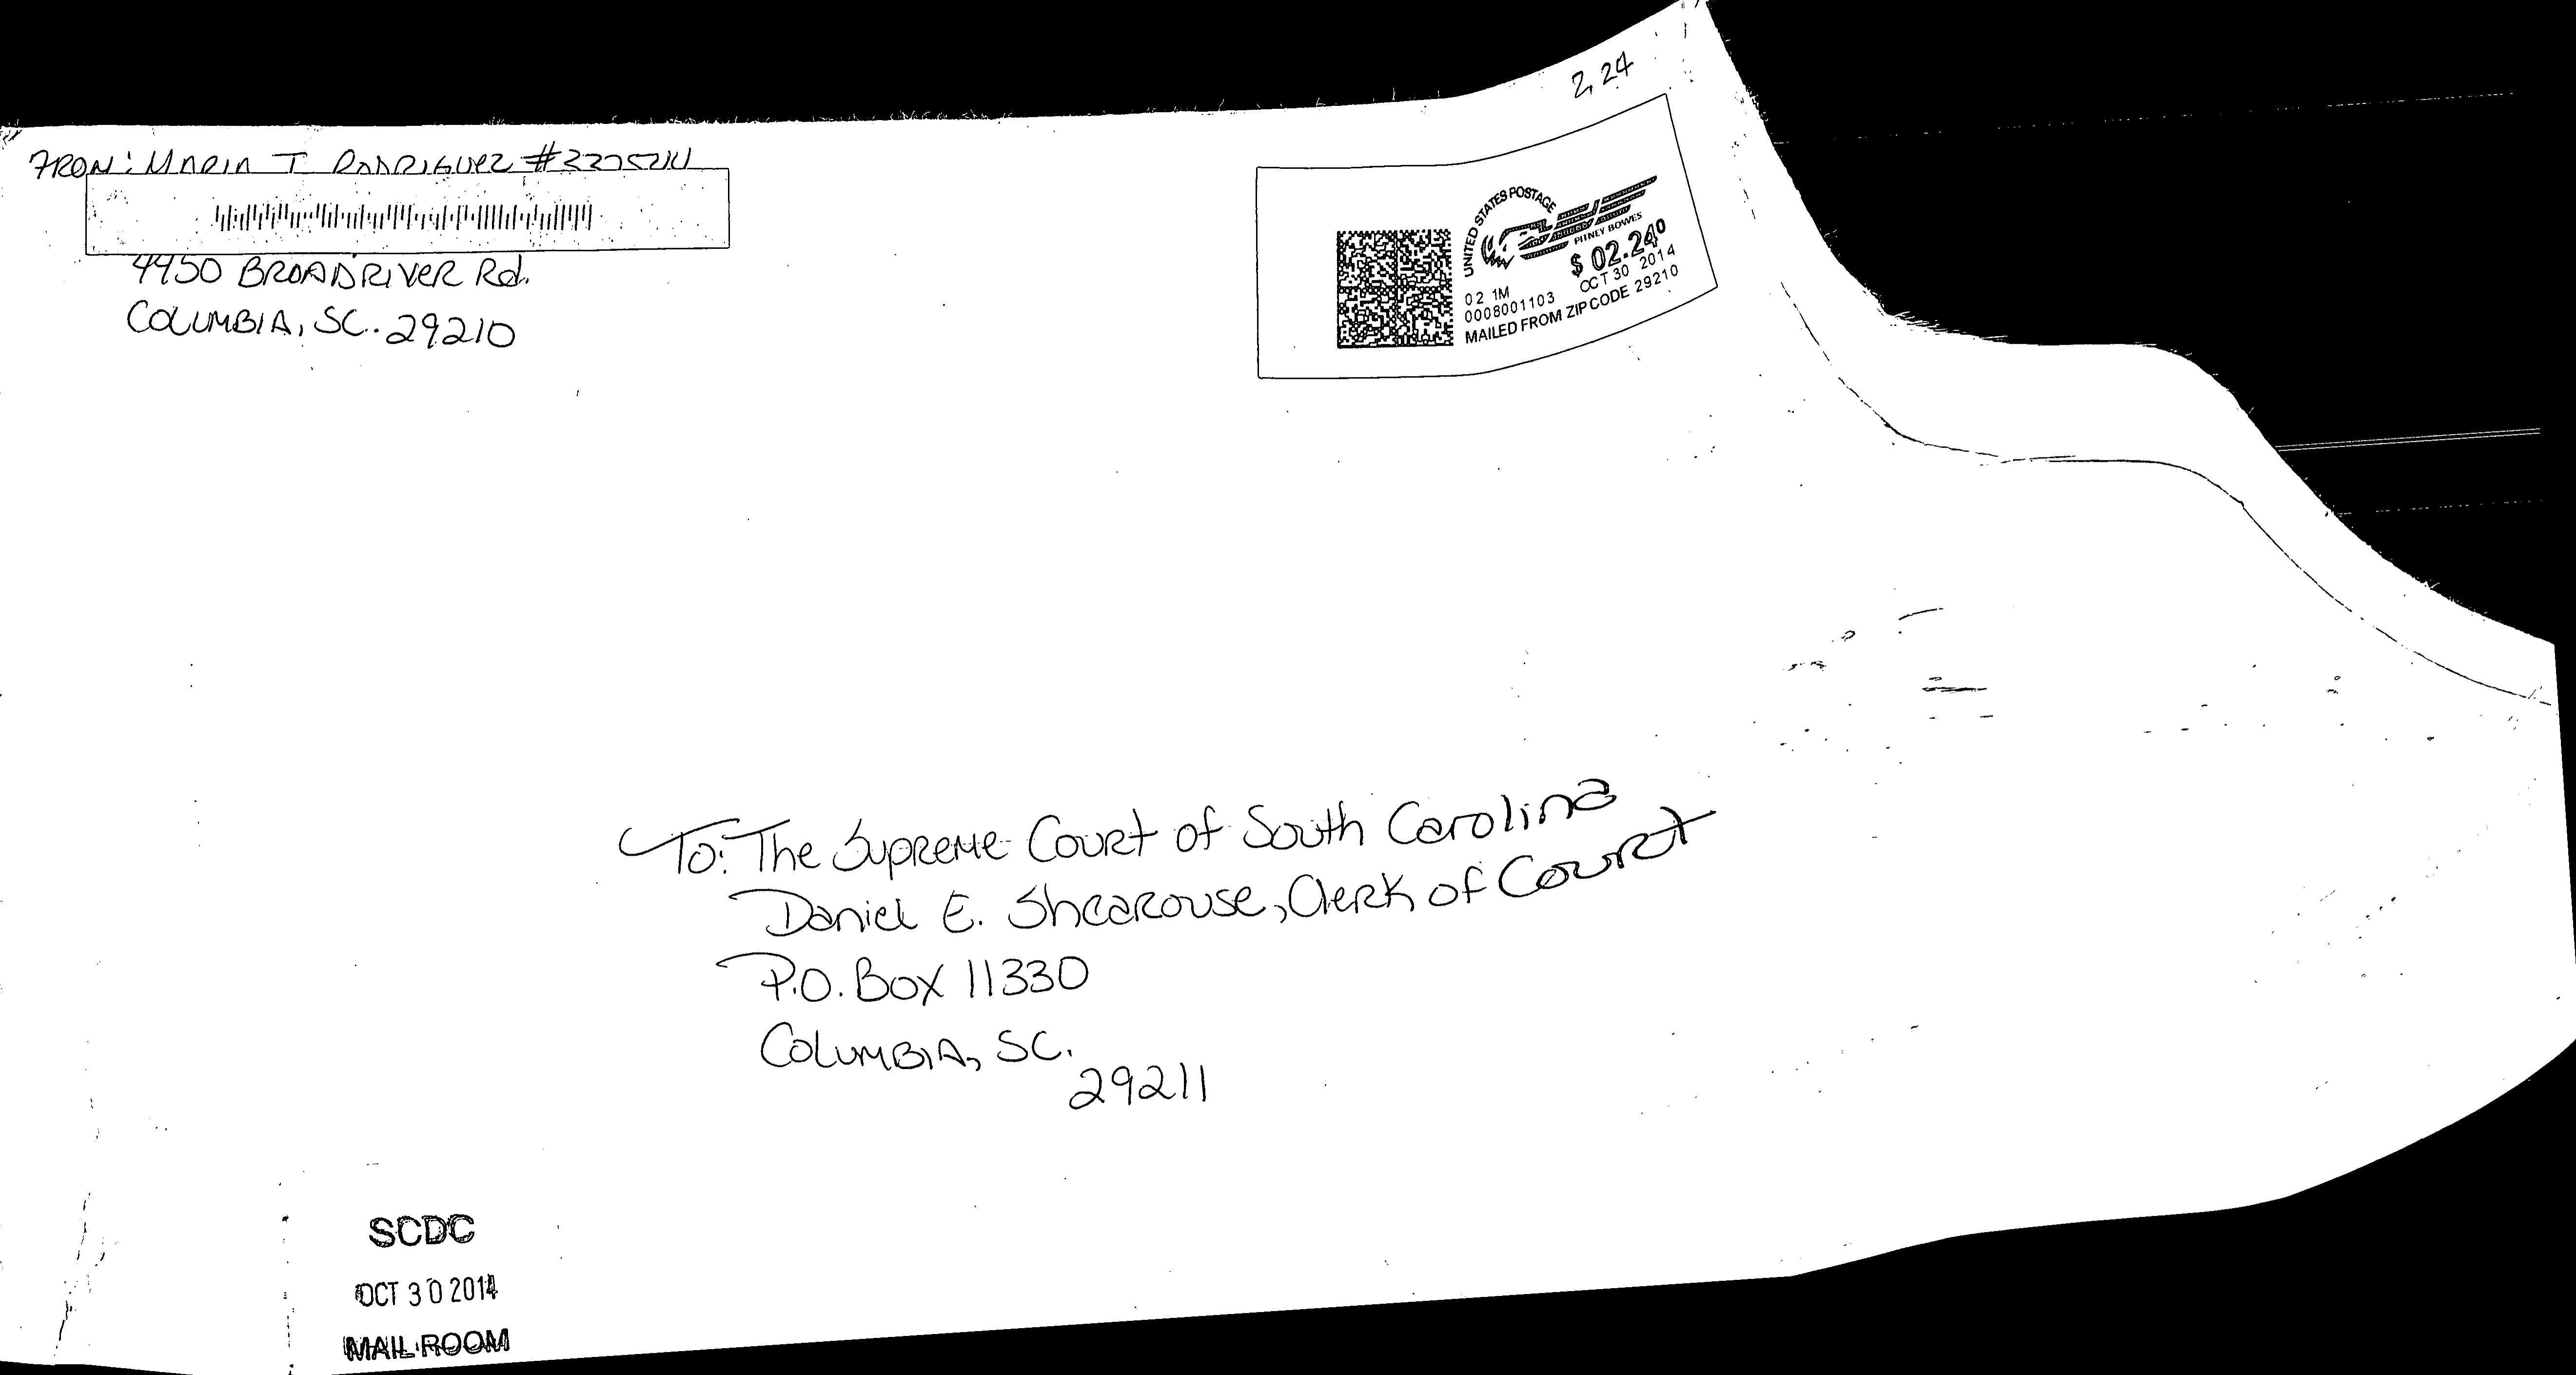 2,24
FROM: MARIA T RODRIGUEZ
4450 BROADRIVER Rd.
COLUMBIA, SC. 29210
UNITED STATES POSTAGE
PITNEY BOWES
$ 02.24⁰
02 1M
OCT 30 2014
0008001103
MAILED FROM ZIP CODE 29210
To: The Supreme Court of South Carolina
Daniel E. Shearouse, Clerk of Court
P.O. Box 11330
COLUMBIA, SC.
29211
SCDC
OCT 30 2014
MAIL ROOM